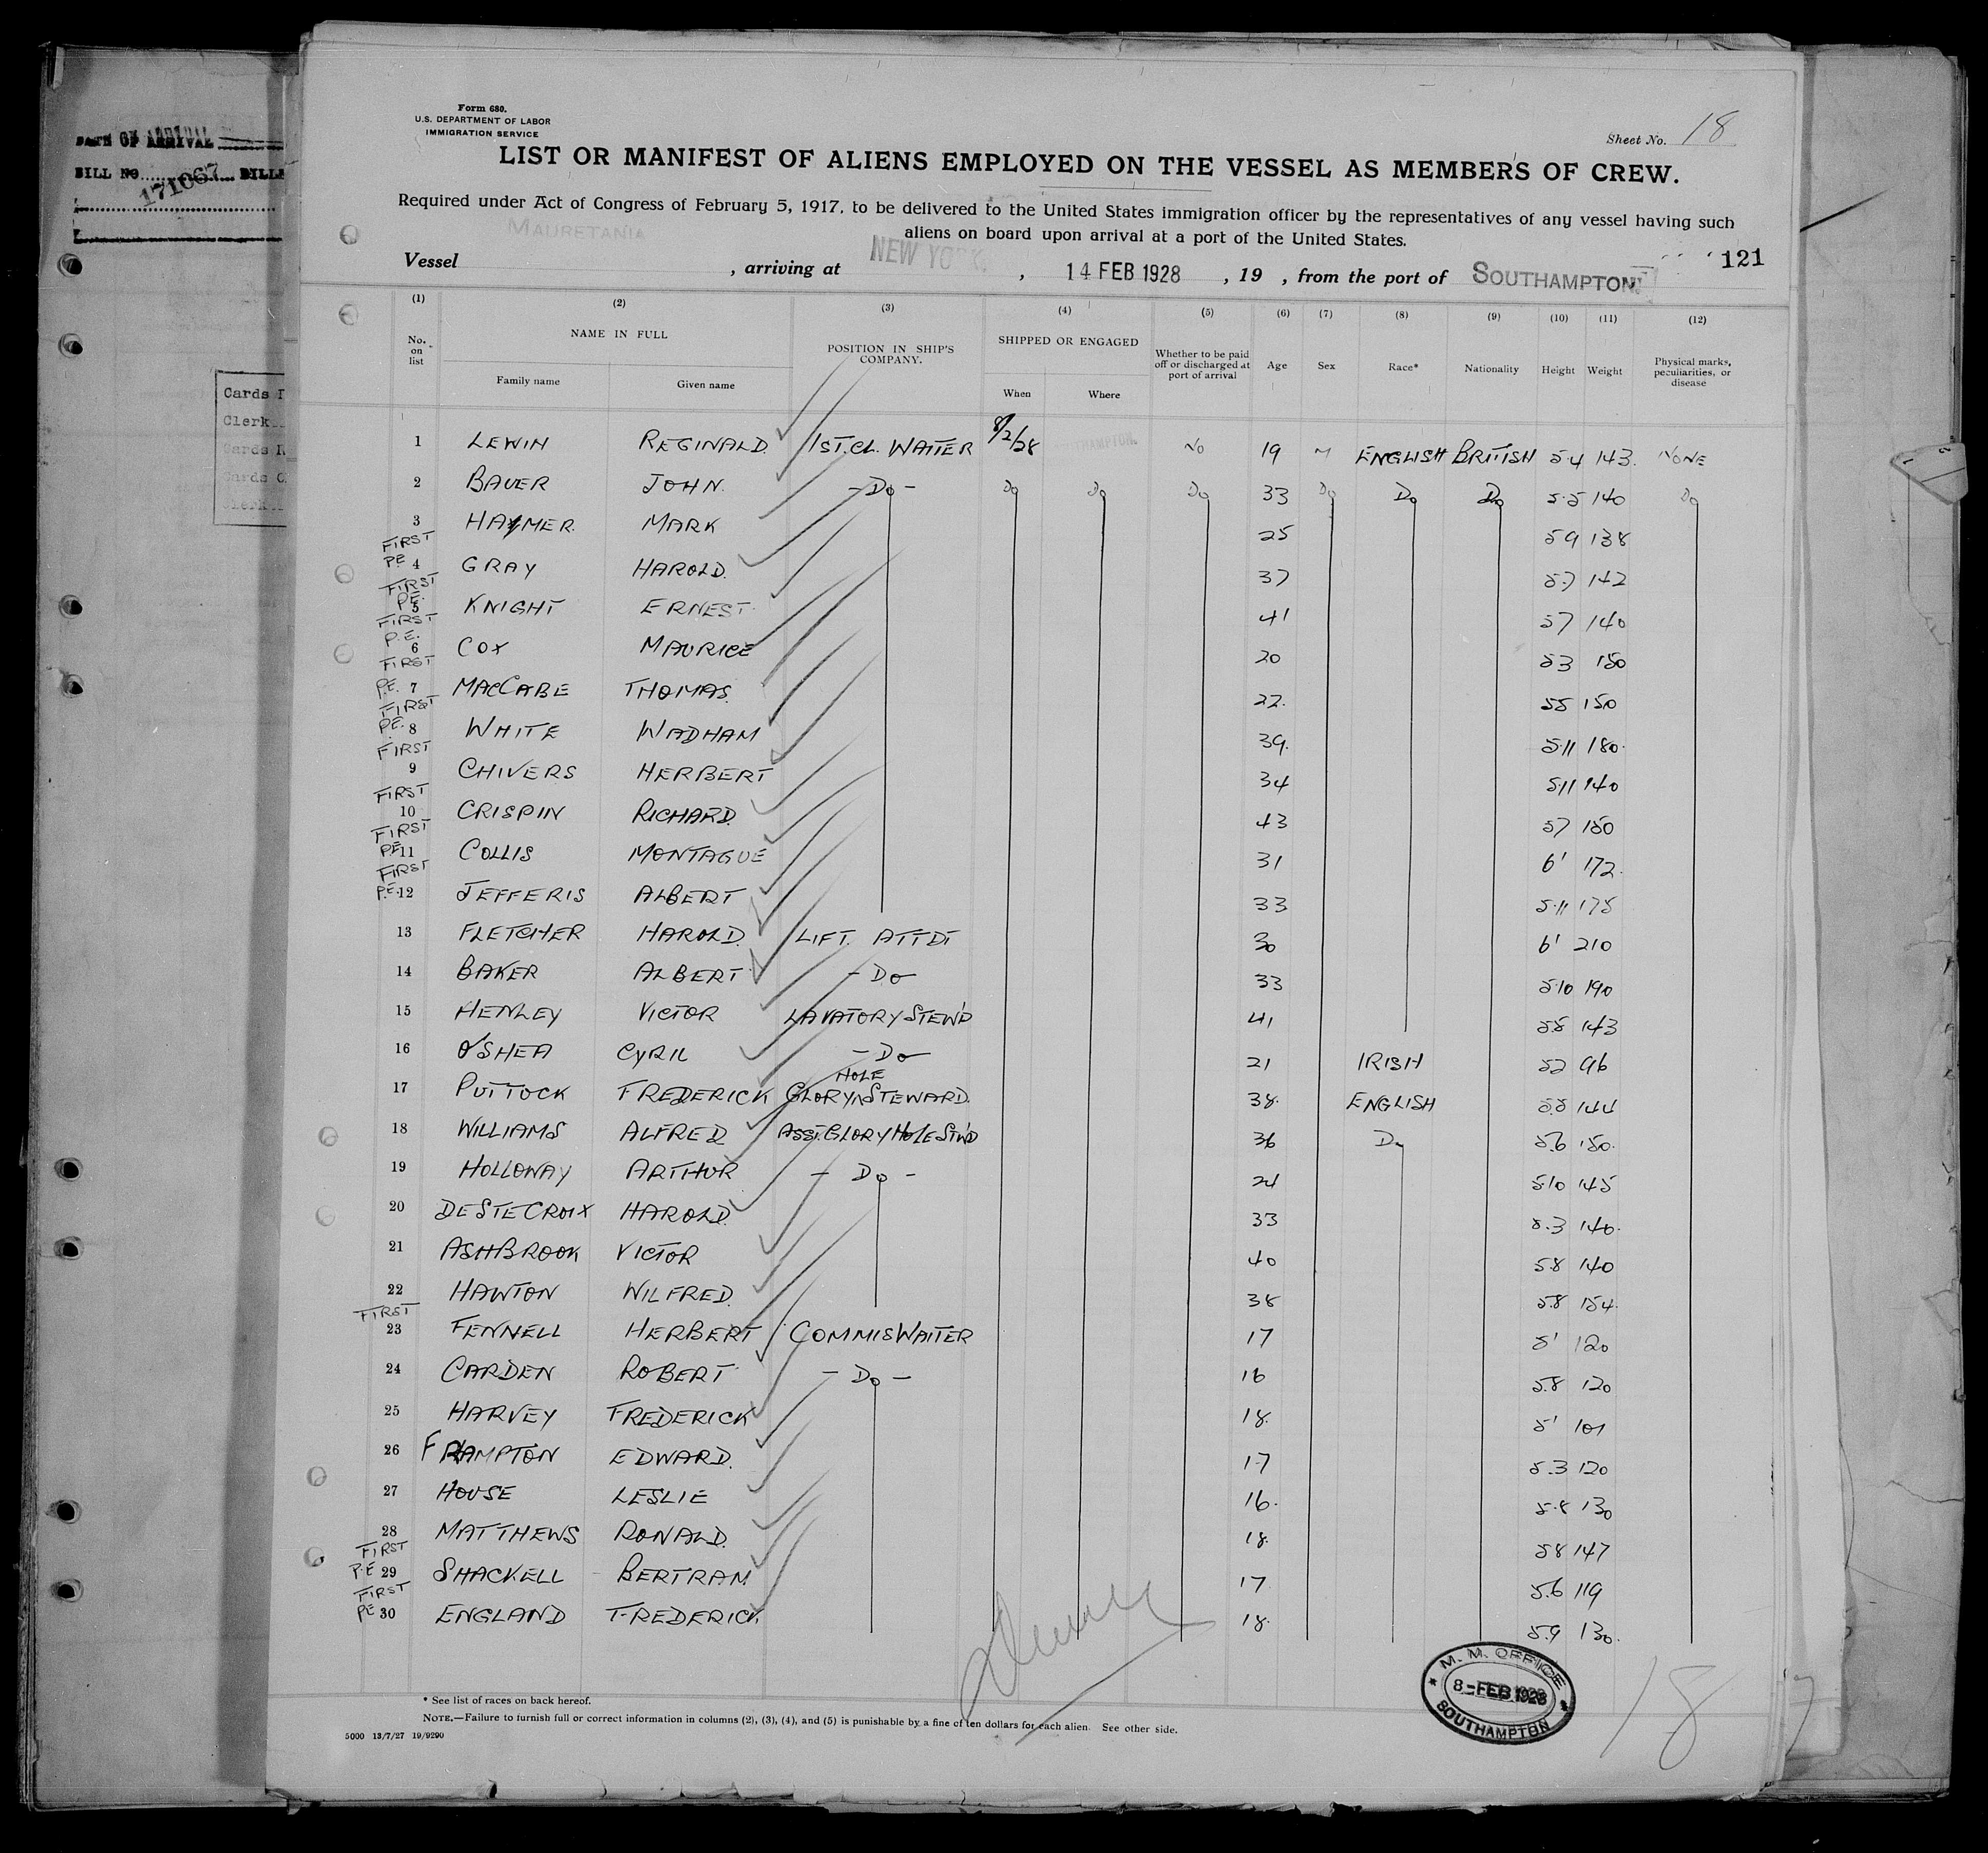 DATE OF ARRIVAL
BILL NO. 171067 BILL
Cards
Clerk
Cards
Cards
Clerk
Form 680.
U.S. DEPARTMENT OF LABOR
IMMIGRATION SERVICE
Sheet No. 18
LIST OR MANIFEST OF ALIENS EMPLOYED ON THE VESSEL AS MEMBERS OF CREW.
Required under Act of Congress of February 5, 1917, to be delivered to the United States immigration officer by the representatives of any vessel having such
aliens on board upon arrival at a port of the United States.
121
Vessel MAURETANIA, arriving at NEW YORK, 14 FEB 1928, 19 , from the port of SOUTHAMPTON
(1) (2) (3) (4) (5) (6) (7) (8) (9) (10) (11) (12)
No. on list NAME IN FULL POSITION IN SHIP'S COMPANY. SHIPPED OR ENGAGED Whether to be paid off or discharged at port of arrival Age Sex Race* Nationality Height Weight Physical marks, peculiarities, or disease
Family name Given name When Where
1 LEWIN REGINALD. 1ST.CL. WAITER 8/2/28 SOUTHAMPTON. No 19 M ENGLISH BRITISH 5.4 143. NONE
2 BAUER JOHN. -Do- Do Do Do 33 Do Do Do 5.5 140 Do
3 HAYMER. MARK 25 59 138
FIRST P.E. 4 GRAY HAROLD. 37 5.7 142
FIRST P.E. 5 KNIGHT ERNEST. 41 57 140
FIRST P.E. 6 COX MAURICE 20 53 150
FIRST P.E. 7 MACCABE THOMAS. 22. 55 150
FIRST P.E. 8 WHITE WADHAM 39. 5.11 180.
FIRST 9 CHIVERS HERBERT 34 5.11 140
FIRST 10 CRISPIN RICHARD. 43 57 150
FIRST P.E. 11 COLLIS MONTAGUE 31 6' 172.
FIRST P.E. 12 JEFFERIS ALBERT 33 5.11 175
13 FLETCHER HAROLD. LIFT. ATTDT 30 6' 210
14 BAKER ALBERT - Do 33 5.10 190
15 HENLEY VICTOR LAVATORY STEW'D 41 5.8 143
16 O'SHEA CYRIL - Do 21 IRISH 52 96
17 PUTTOCK FREDERICK GLORY HOLE STEWARD. 38. ENGLISH 5.5 144
18 WILLIAMS ALFRED ASST. GLORY HOLE STWD 36 Do 5.6 150.
19 HOLLOWAY ARTHUR - Do - 24 5.10 145
20 DESTECROIX HAROLD. 33 5.3 140.
21 ASHBROOK VICTOR 40 5.8 140
22 HAWTON WILFRED. 38 5.8 154.
FIRST 23 FENNELL HERBERT COMMIS WAITER 17 5' 120
24 CARDEN ROBERT - Do - 16 5.8 120
25 HARVEY FREDERICK 18. 5' 101
26 FRAMPTON EDWARD. 17 5.3 120
27 HOUSE LESLIE 16. 5.8 130
28 MATTHEWS RONALD. 18. 58 147
FIRST P.E 29 SHACKELL BERTRAM 17 5.6 119
FIRST P.E 30 ENGLAND FREDERICK. 18. 5.9 130.
M. M. OFFICE
8 - FEB 1928
SOUTHAMPTON
18
* See list of races on back hereof.
NOTE.—Failure to furnish full or correct information in columns (2), (3), (4), and (5) is punishable by a fine of ten dollars for each alien. See other side.
5000 13/7/27 19/9290